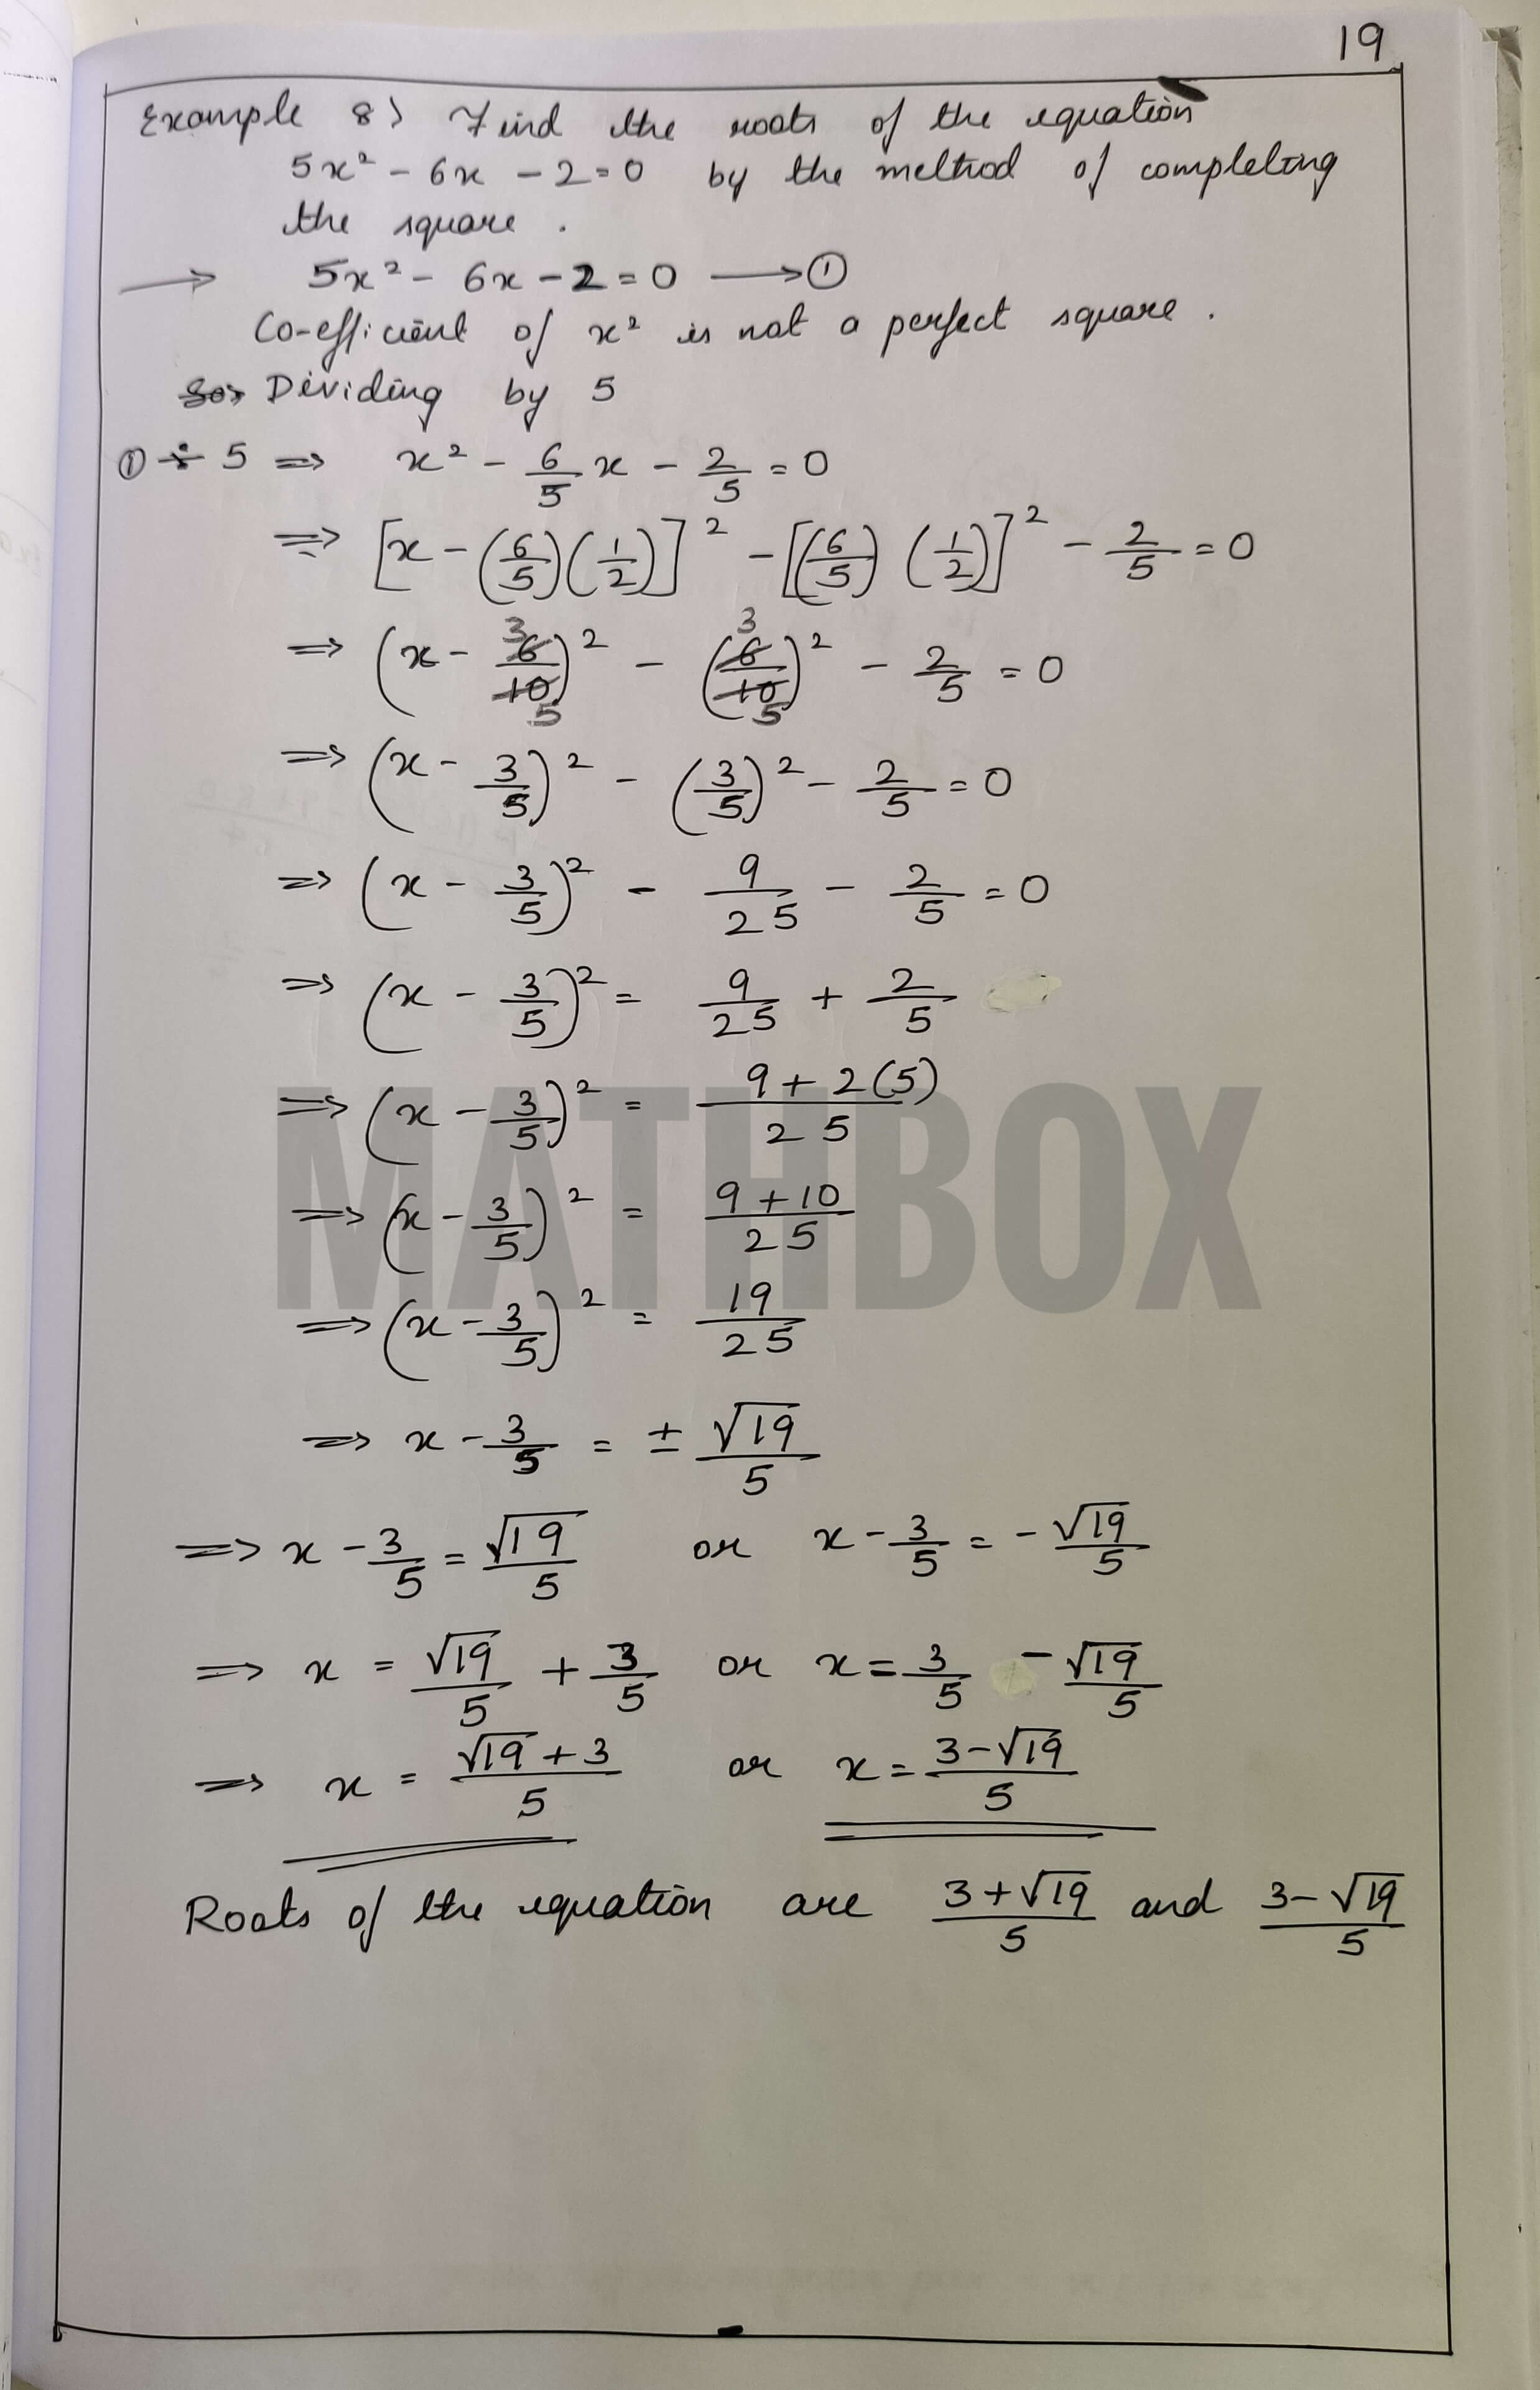 19
Example 8> Find the roots of the equation
5x² - 6x - 2 = 0 by the method of completing
the square .
⟶ 5x² - 6x - 2 = 0 ⟶ ①
Co-efficient of x² is not a perfect square .
So, Dividing by 5
① ÷ 5 ⇒ x² - 6/5 x - 2/5 = 0
⇒ [x - (6/5)(1/2)]² - [(6/5) (1/2)]² - 2/5 = 0
⇒ (x - 6/10)² - (6/10)² - 2/5 = 0
⇒ (x - 3/5)² - (3/5)² - 2/5 = 0
⇒ (x - 3/5)² - 9/25 - 2/5 = 0
⇒ (x - 3/5)² = 9/25 + 2/5
⇒ (x - 3/5)² = (9 + 2(5))/25
MATHBOX
⇒ (x - 3/5)² = (9 + 10)/25
⇒ (x - 3/5)² = 19/25
⇒ x - 3/5 = ± √19/5
⇒ x - 3/5 = √19/5 or x - 3/5 = - √19/5
⇒ x = √19/5 + 3/5 or x = 3/5 - √19/5
⇒ x = (√19 + 3)/5 or x = (3 - √19)/5
Roots of the equation are (3 + √19)/5 and (3 - √19)/5